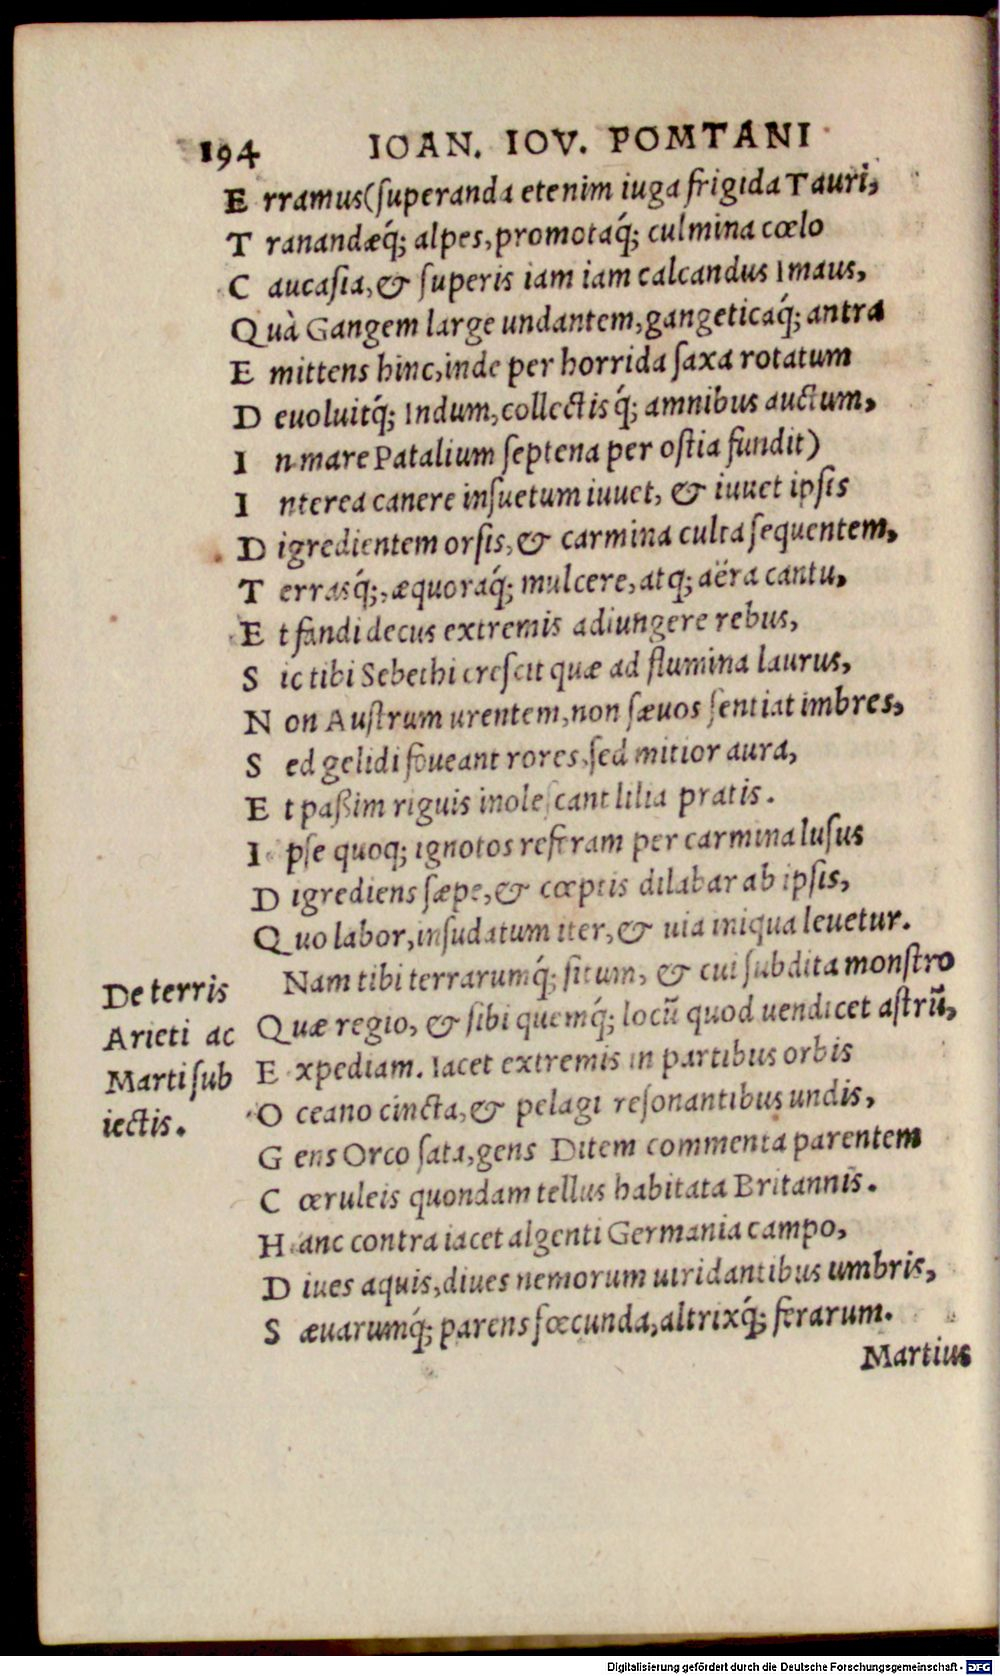 194 IOAN. IOV. POMTANI
E rramus(ſuperanda etenim iuga frigida Tauri,
T ranandæq́; alpes, promotaq́; culmina cœlo
C aucaſia, & ſuperis iam iam calcandus Imaus,
Quà Gangem large undantem, gangeticaq́; antra
E mittens hinc, inde per horrida ſaxa rotatum
D euoluitq́; Indum, collectisq́; amnibus auctum,
I n mare Patalium ſeptena per oſtia fundit)
I nterea canere inſuetum iuuet, & iuuet ipſis
D igredientem orſis, & carmina culta ſequentem,
T errasq́;, æquoraq́; mulcere, atq; aëra cantu,
E t fandi decus extremis adiungere rebus,
S ic tibi Sebethi creſcit quæ ad flumina laurus,
N on Auſtrum urentem, non ſæuos ſentiat imbres,
S ed gelidi foueant rores, ſed mitior aura,
E t paßim riguis inoleſcant lilia pratis.
I pſe quoq; ignotos referam per carmina luſus
D igrediens ſæpe, & cœptis dilabar ab ipſis,
Quo labor, inſudatum iter, & uia iniqua leuetur.
Nam tibi terrarumq́; ſitum, & cui ſubdita monſtro
Quæ regio, & ſibi quemq́; locū quod uendicet aſtrū,
E xpediam. Iacet extremis in partibus orbis
O ceano cincta, & pelagi reſonantibus undis,
G ens Orco ſata, gens Ditem commenta parentem
C œruleis quondam tellus habitata Britannis.
H anc contra iacet algenti Germania campo,
D iues aquis, diues nemorum uiridantibus umbris,
S æuarumq́; parens fœcunda, altrixq́; ferarum.
Martius
De terris
Arieti ac
Marti ſub
iectis.
Digitalisierung gefördert durch die Deutsche Forschungsgemeinschaft - DFG